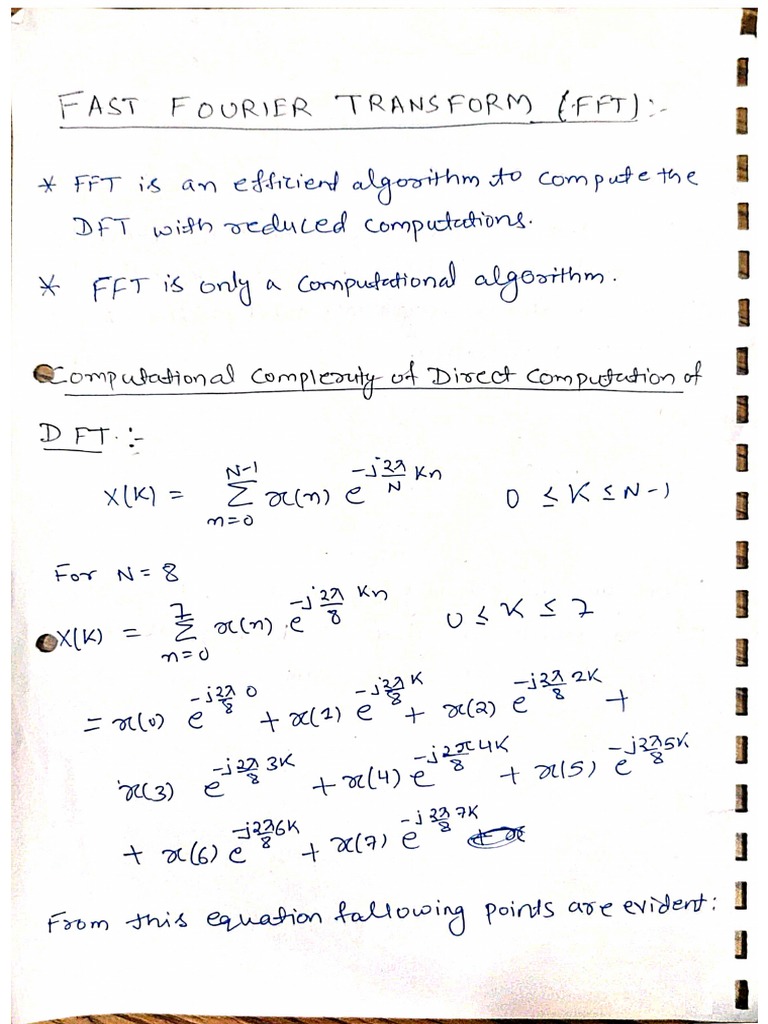 FAST FOURIER TRANSFORM (FFT):-
* FFT is an efficient algorithm to compute the
DFT with reduced computations.
* FFT is only a computational algorithm.
Computational Complexity of Direct Computation of
DFT :-
X(K) = Σ_{n=0}^{N-1} x(n) e^{-j 2π/N Kn}   0 ≤ K ≤ N-1
For N = 8
X(K) = Σ_{n=0}^{7} x(n) e^{-j 2π/8 Kn}   0 ≤ K ≤ 7
= x(0) e^{-j 2π/8 0} + x(1) e^{-j 2π/8 K} + x(2) e^{-j 2π/8 2K} +
x(3) e^{-j 2π/8 3K} + x(4) e^{-j 2π/8 4K} + x(5) e^{-j 2π/8 5K}
+ x(6) e^{-j 2π/8 6K} + x(7) e^{-j 2π/8 7K}
From this equation following points are evident: